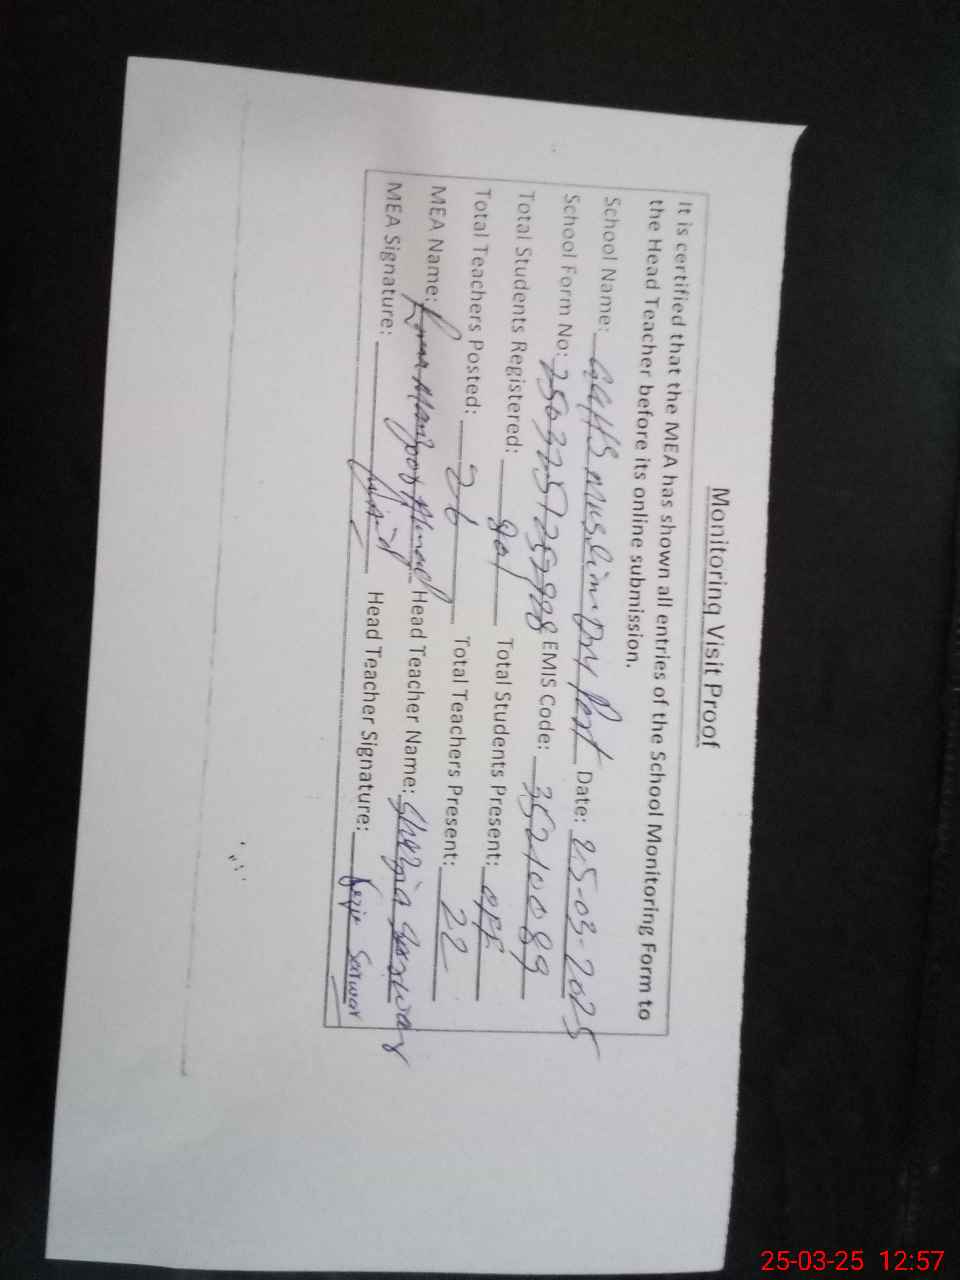 Monitoring Visit Proof
It is certified that the MEA has shown all entries of the School Monitoring Form to
the Head Teacher before its online submission.
School Name: Muslim Date: 25-03-2025
School Form No: EMIS Code: 35210089
Total Students Registered: 801 Total Students Present: off
Total Teachers Posted: 26 Total Teachers Present: 22
MEA Name: Manzoor Ahmad Head Teacher Name: Shazia Sarwar
MEA Signature: Head Teacher Signature: Sarwar
25-03-25 12:57